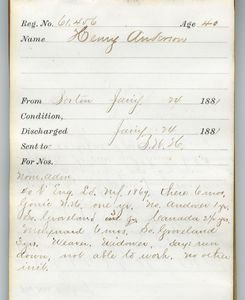 Reg. No. 61,456 Age 40
Name Henry Anderson
From Boston Jany. 24 1881
Condition,
Discharged Jany. 24 1881
Sent to S.A.H.
For Nos.
Nom. adm.
to N. Eng. Eb. Nf. 1869. There 6 mos,
Gonic N.H. one yr. No. Andover 1 yr
So. Groveland yr Canada 2½ yrs
Maynard 6 mos, So. Groveland
2 yrs. Weaver. Widower. Says run
down, not able to work. No other
inst.